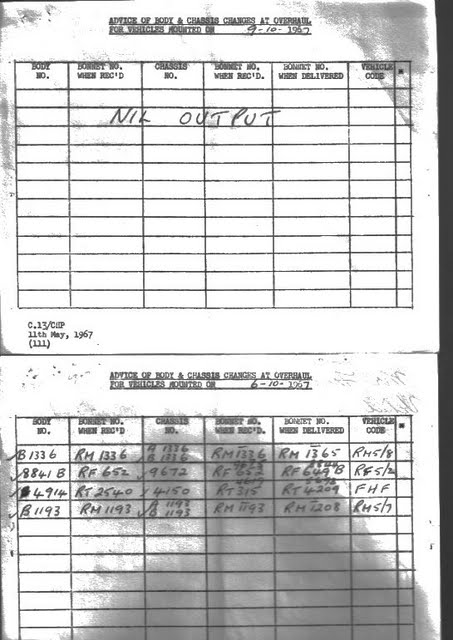 ADVICE OF BODY & CHASSIS CHANGES AT OVERHAUL
FOR VEHICLES MOUNTED ON 9-10-1967
BODY NO. BONNET NO. WHEN REC'D CHASSIS NO. BONNET NO. WHEN REC'D. BONNET NO. WHEN DELIVERED VEHICLE CODE *
NIL OUTPUT
C.13/CHP
11th May, 1967
(111)
ADVICE OF BODY & CHASSIS CHANGES AT OVERHAUL
FOR VEHICLES MOUNTED ON 6-10-1967
BODY NO. BONNET NO. WHEN REC'D CHASSIS NO. BONNET NO. WHEN REC'D. BONNET NO. WHEN DELIVERED VEHICLE CODE *
✓B1336 RM1336 A 1336 ✓B 1336 RM1336 RM 1365 RM5/8
✓8841 B RF 652 ✓9672 RF 652 RF 649 B RF5/2
4914 RT 2540 ✓4150 RT315 RT 4209 FHF
✓B1193 RM1193 A 1193 ✓B 1193 RM1193 RM 1208 RM5/7